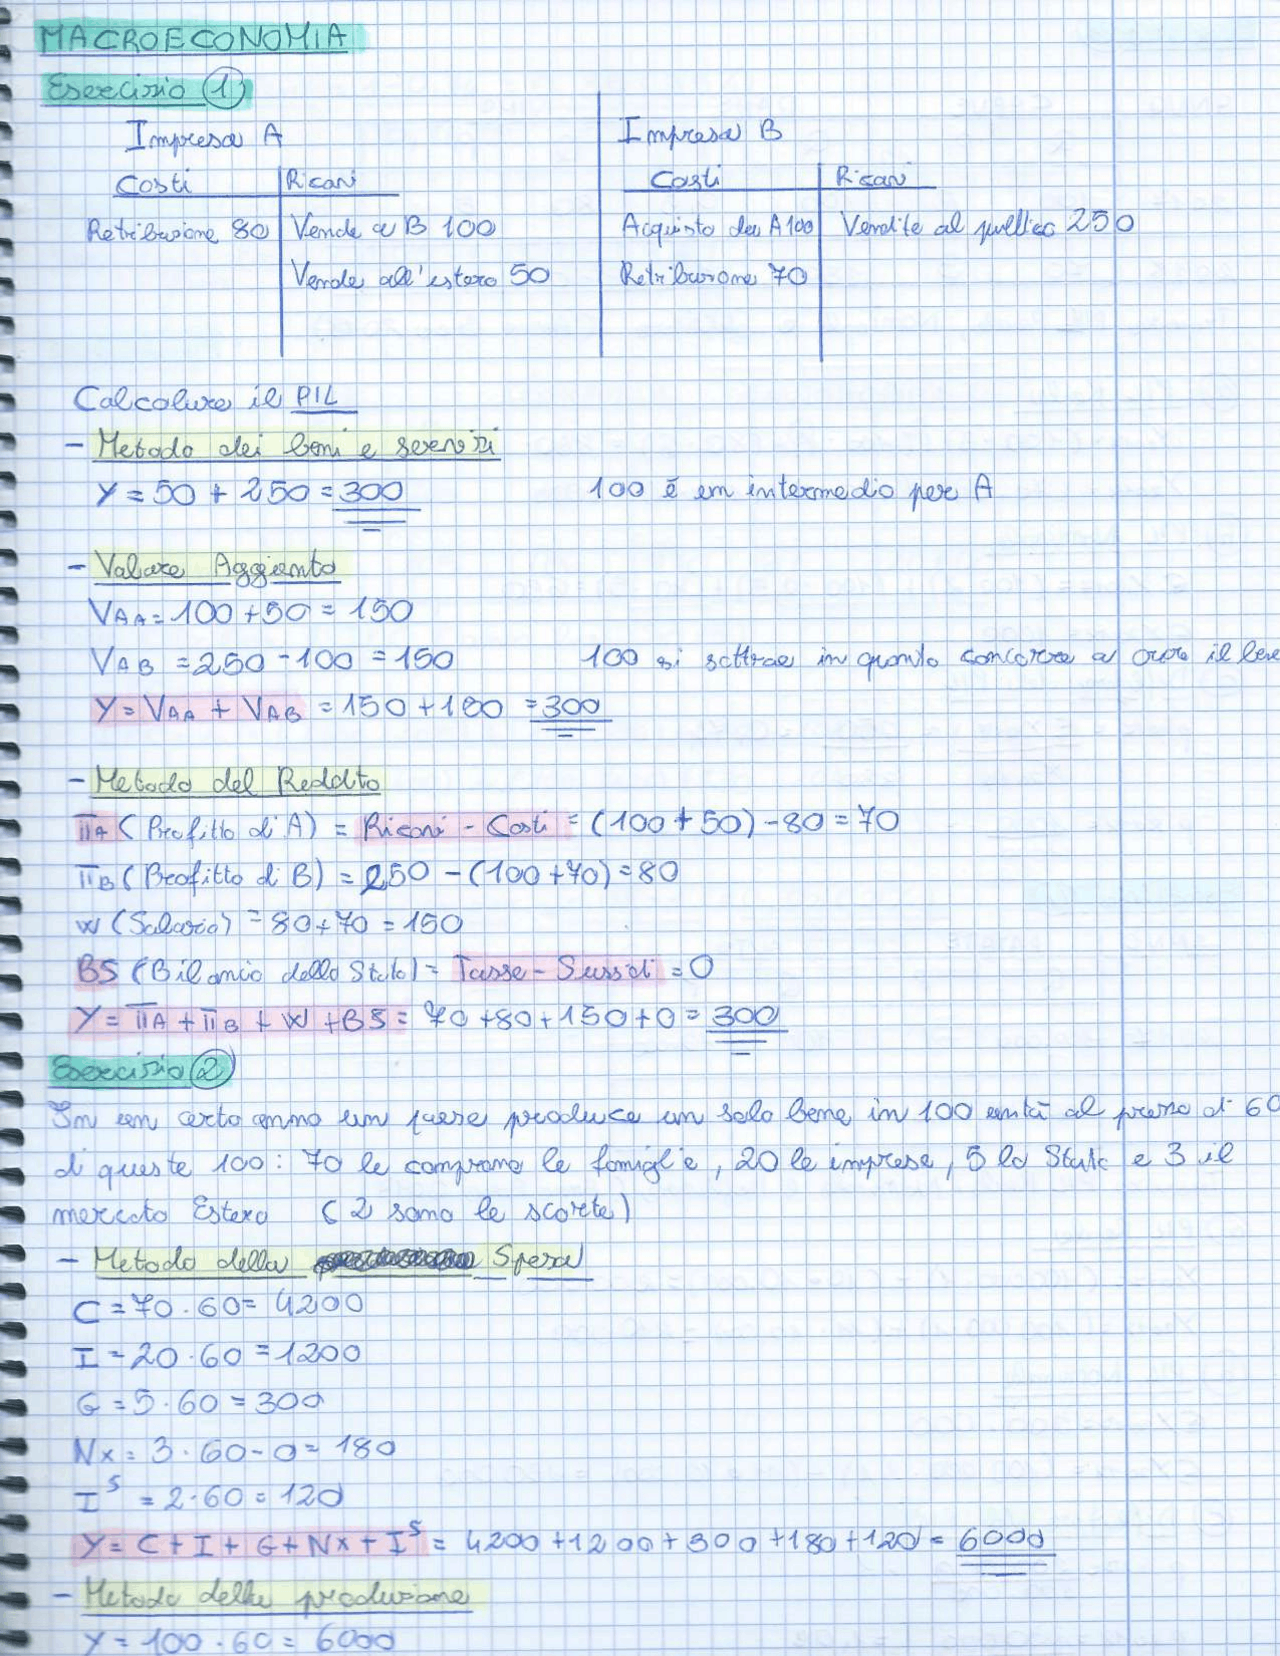 MACROECONOMIA
Esercizio 1
Impresa A
Impresa B
Costi Ricavi
Costi Ricavi
Retribuzione 80 Vende a B 100
Acquisto da A 100 Vendite al pubblico 250
Vende all'estero 50
Retribuzione 70
Calcolare il PIL
- Metodo dei beni e servizi
Y = 50 + 250 = 300 100 è un intermedio per A
- Valore Aggiunto
VAA = 100 + 50 = 150
VAB = 250 - 100 = 150 100 si sottrae in quanto concorre a il bene
Y = VAA + VAB = 150 + 150 = 300
- Metodo del Reddito
πA (Profitto di A) = Ricavi - Costi = (100 + 50) - 80 = 70
πB (Profitto di B) = 250 - (100 + 70) = 80
W (Salario) = 80 + 70 = 150
BS (Bilancio dello Stato) = Tasse - Sussidi = 0
Y = πA + πB + W + BS = 70 + 80 + 150 + 0 = 300
Esercizio 2
In un certo anno un paese produce un solo bene, in 100 unità al prezzo di 60
di queste 100: 70 le comprano le famiglie, 20 le imprese, 5 lo Stato e 3 il
mercato Estero (2 sono le scorte)
- Metodo della Spesa
C = 70 · 60 = 4200
I = 20 · 60 = 1200
G = 5 · 60 = 300
Nx = 3 · 60 - 0 = 180
I^S = 2 · 60 = 120
Y = C + I + G + Nx + I^S = 4200 + 1200 + 300 + 180 + 120 = 6000
- Metodo della produzione
Y = 100 · 60 = 6000